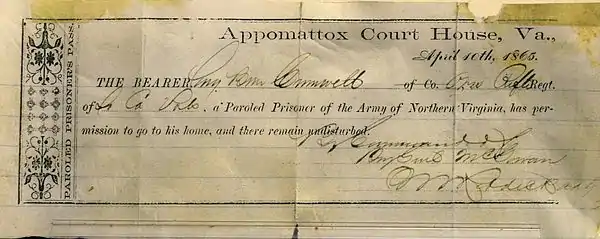 PAROLED PRISONER'S PASS.
Appomattox Court House, Va.,
April 10th, 1865.
THE BEARER, Benj Cromwell of Co. Regt.
of So Ca Vols., a Paroled Prisoner of the Army of Northern Virginia, has per-
mission to go to his home, and there remain undisturbed.
By Command of
McGowan